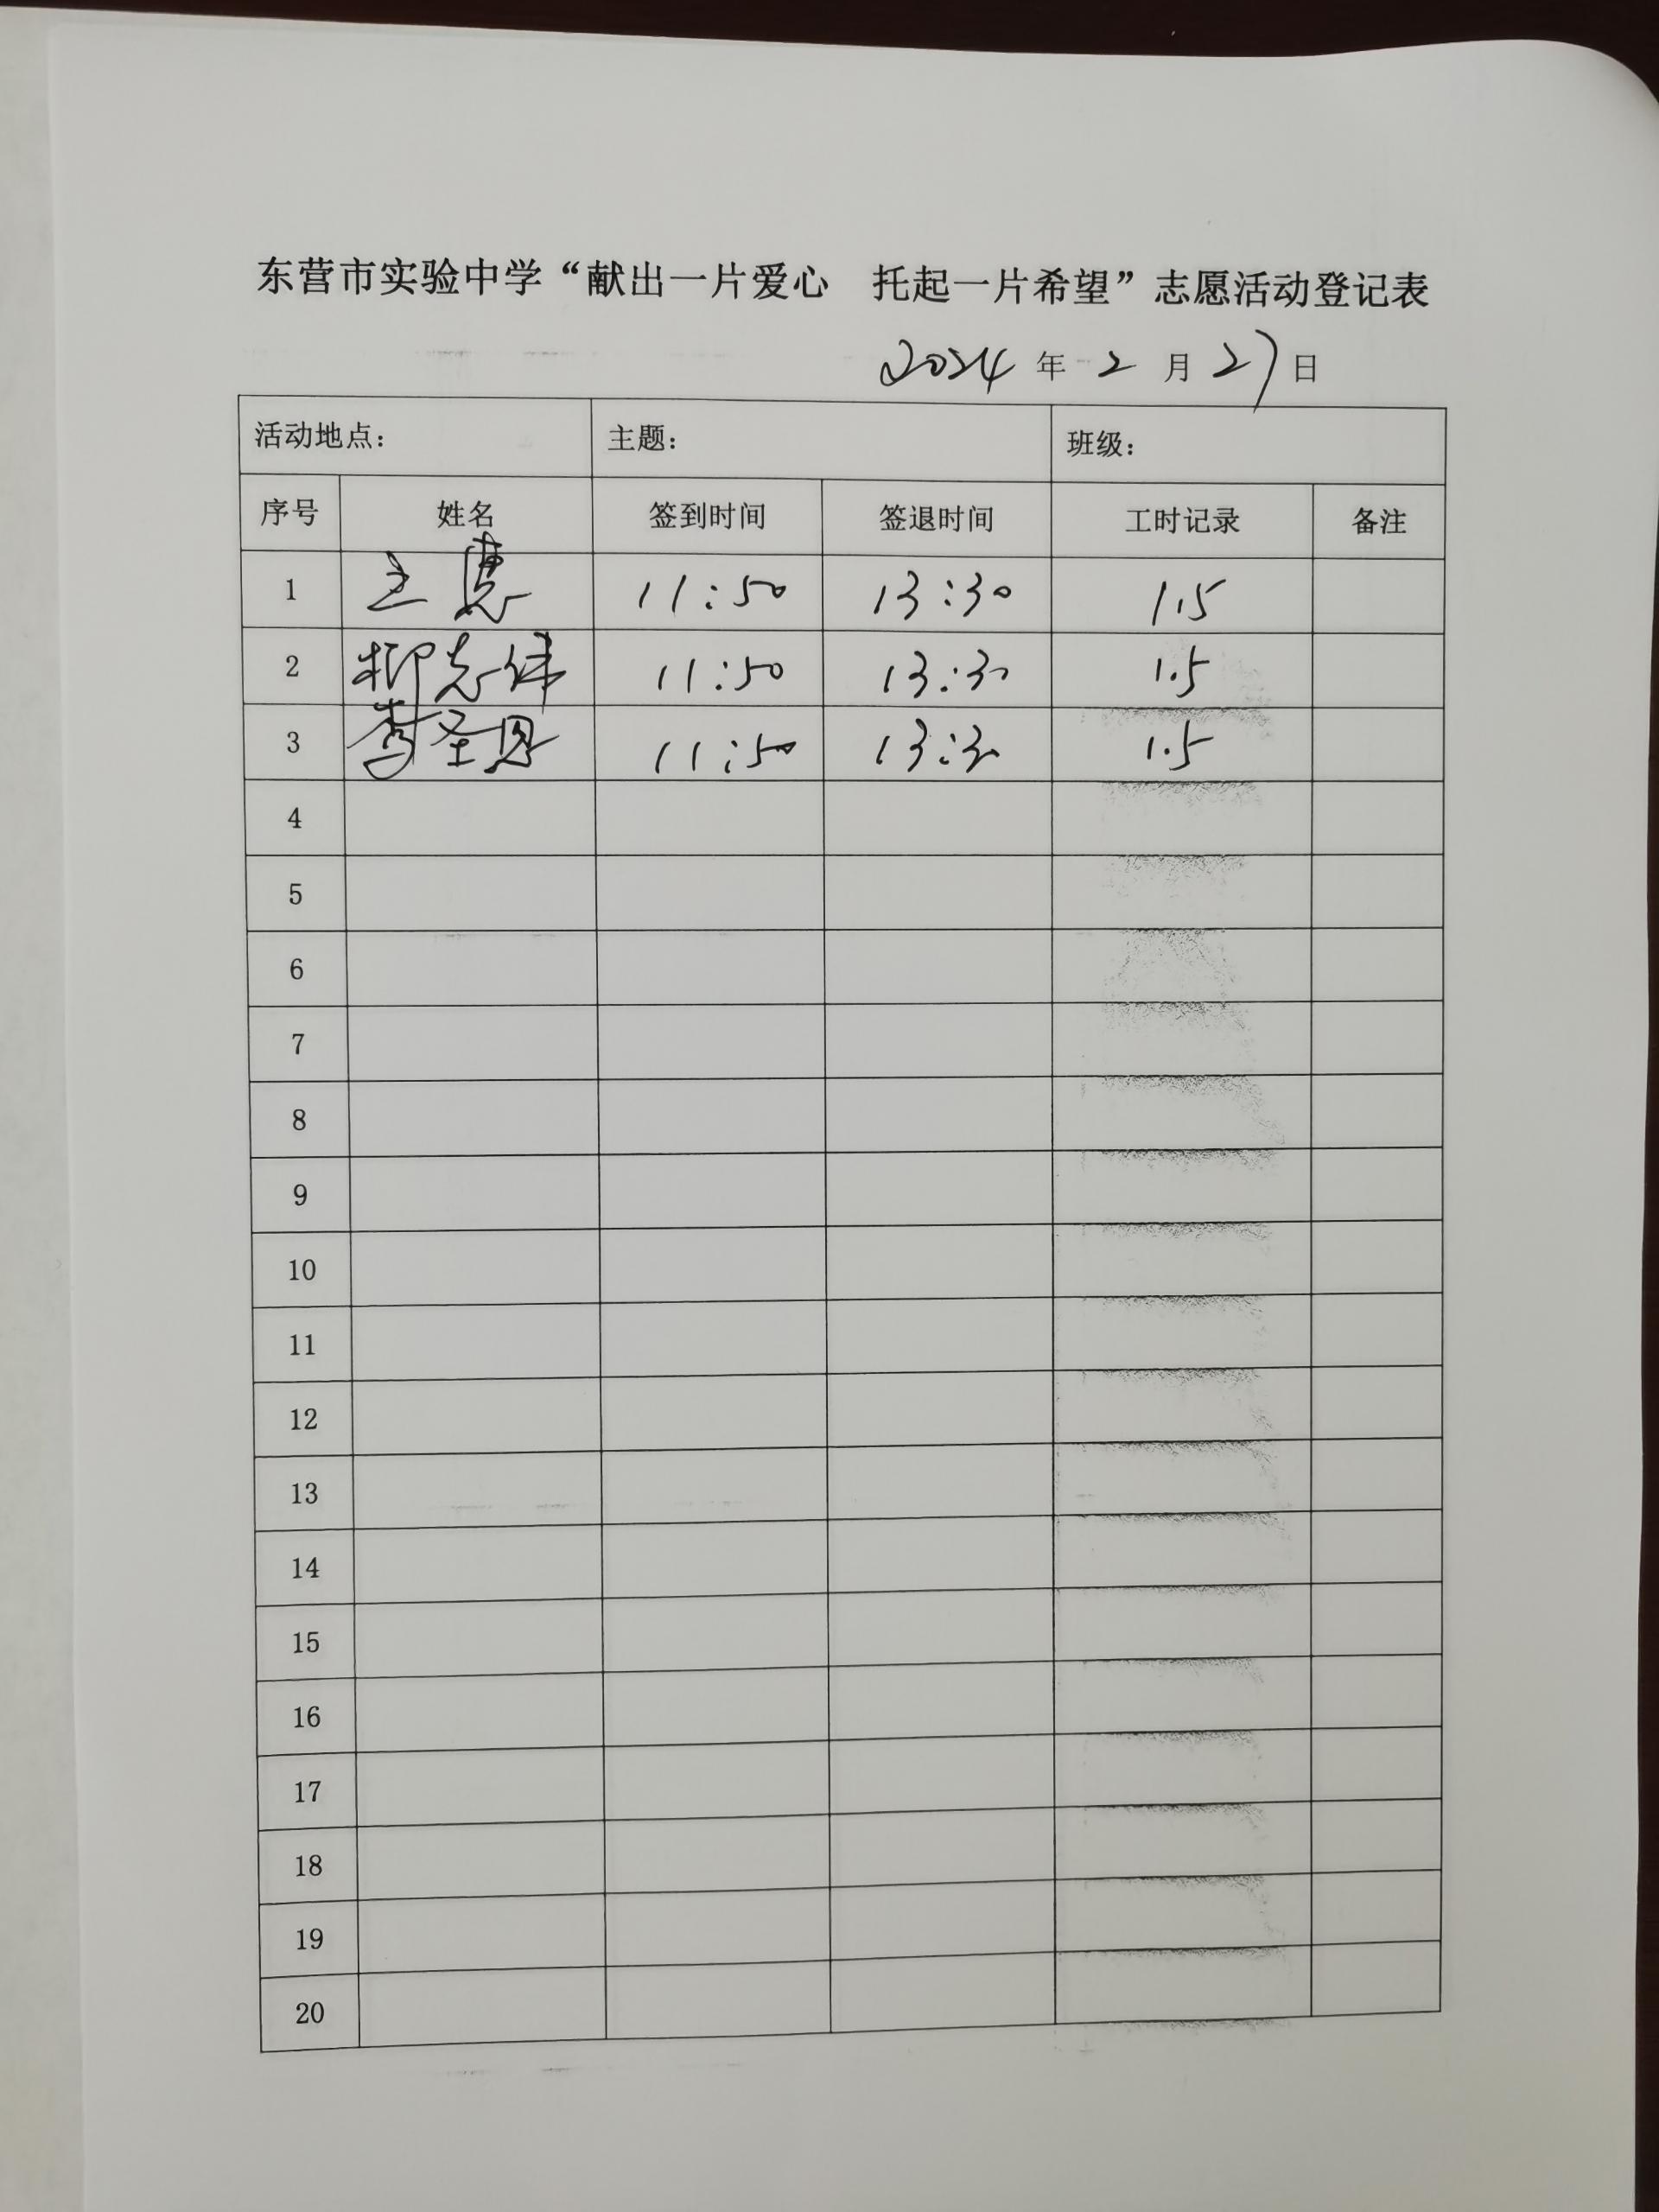 东营市实验中学“献出一片爱心　托起一片希望”志愿活动登记表
2024 年 2 月 27 日
活动地点： 主题： 班级：
序号 姓名 签到时间 签退时间 工时记录 备注
1 王惠 11:50 13:30 1.5
2 柳志伟 11:50 13:30 1.5
3 李圣恩 11:50 13:30 1.5
4
5
6
7
8
9
10
11
12
13
14
15
16
17
18
19
20